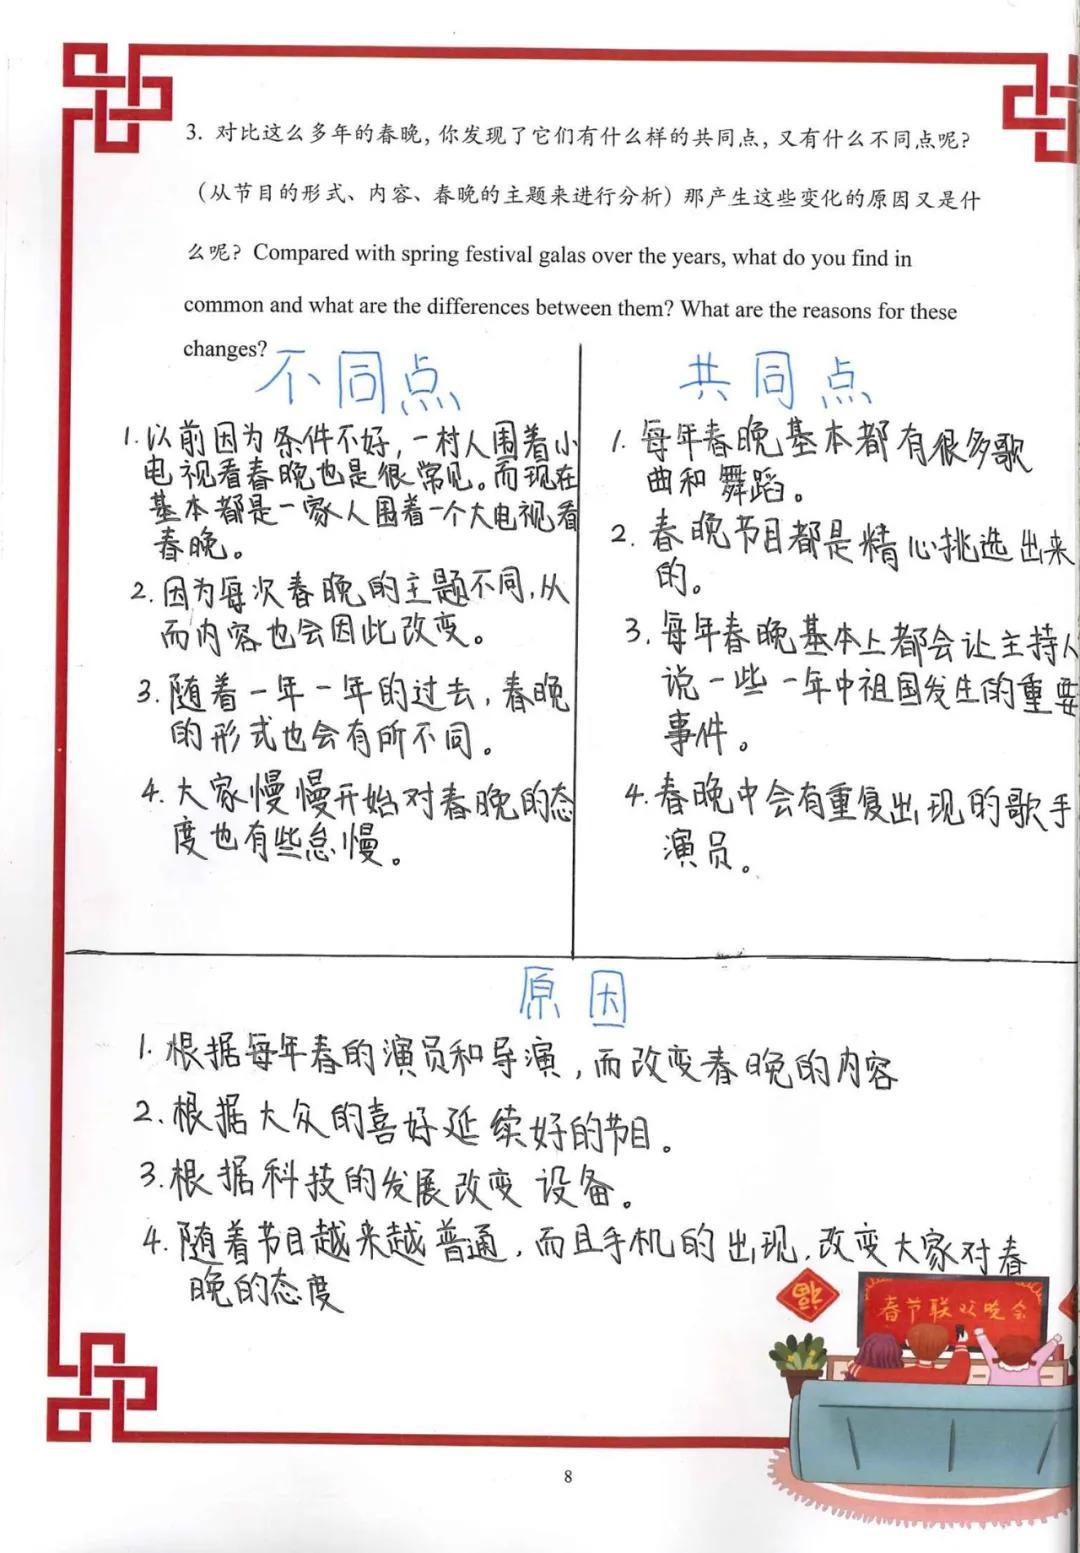 3. 对比这么多年的春晚，你发现了它们有什么样的共同点，又有什么不同点呢？
（从节目的形式、内容、春晚的主题来进行分析）那产生这些变化的原因又是什
么呢？Compared with spring festival galas over the years, what do you find in
common and what are the differences between them? What are the reasons for these
changes?
不同点
1.以前因为条件不好，一村人围着小
电视看春晚也是很常见。而现在
基本都是一家人围着一个大电视看
春晚。
2.因为每次春晚的主题不同，从
而内容也会因此改变。
3.随着一年一年的过去，春晚
的形式也会有所不同。
4.大家慢慢开始对春晚的态
度也有些怠慢。
共同点
1.每年春晚基本都有很多歌
曲和舞蹈。
2.春晚节目都是精心挑选出来
的。
3.每年春晚基本上都会让主持人
说一些一年中祖国发生的重要
事件。
4.春晚中会有重复出现的歌手
演员。
原因
1.根据每年春的演员和导演，而改变春晚的内容
2.根据大众的喜好延续好的节目。
3.根据科技的发展改变设备。
4.随着节目越来越普通，而且手机的出现，改变大家对春
晚的态度
福
春节联欢晚会
8